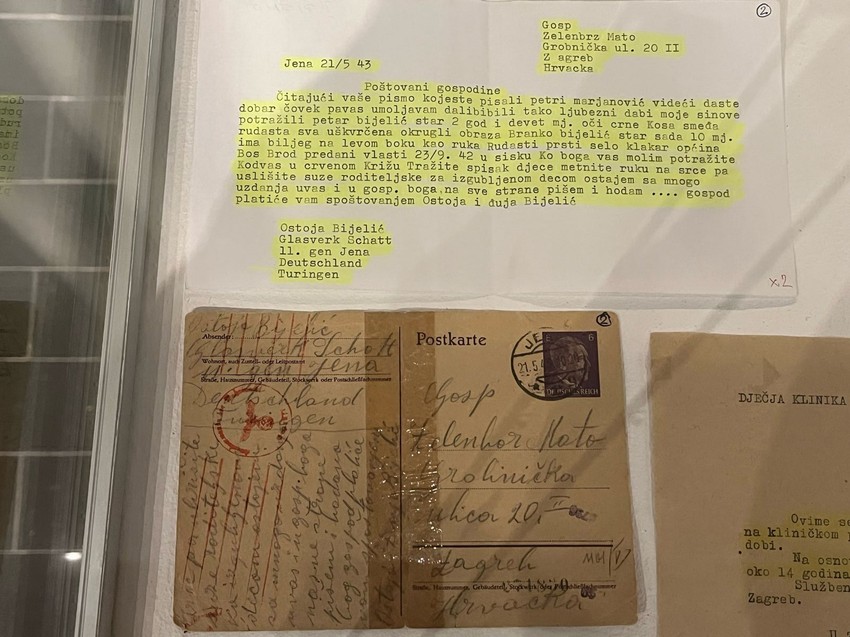 ②
Gosp
Zelenbrz Mato
Grobnička ul. 20 II
Z agreb
Hrvacka
Jena 21/5 43
Poštovani gospodine
Čitajući vaše pismo kojeste pisali petri marjanović videći daste
dobar čovek pavas umoljavam dalibibili tako ljubezni dabi moje sinove
potražili petar bijelić star 2 god i devet mj. oči crne Kosa smeđa
rudasta sva uškvrčena okrugli obraza Branko bijelić star sada 10 mj.
ima biljeg na levom boku kao ruka Rudasti prsti selo klakar općina
Bos Brod predani vlasti 23/9. 42 u sisku Ko boga vas molim potražite
Kodvas u crvenom Križu Tražite spisak djece metnite ruku na srce pa
uslišite suze roditeljske za izgubljenom decom ostajem sa mnogo
uzdanja uvas i u gosp. boga na sve strane pišem i hodam .... gospod
platiće vam spoštovanjem Ostoja i duja Bijelić
Ostoja Bijelić
Glasverk Schatt
11. gen Jena
Deutschland
Turingen
x2
②
Ostoja Bijelić
Absender:
Glasverk Schott
Wohnort, auch Zustell- oder Leitpostamt
11. gen Jena
Straße, Hausnummer, Gebäudeteil, Stockwerk oder Postschließfachnummer
Deutschland
Postkarte
21.5.4
6
DEUTSCHES REICH
Gosp
Zelenbor Mato
Grobnička
ulica 20, II
Zagreb
Straße, Hausnummer, Gebäudeteil, Stockwerk oder Postschließfachnummer
Hrvacka
suze roditeljske
uvas i u gosp. boga
na sve strane
pišem i hodam
DJEČJA KLINIKA
Ovime se
na kliničkom
dobi.
Na osno
oko 14 godina
Služben
Zagreb.